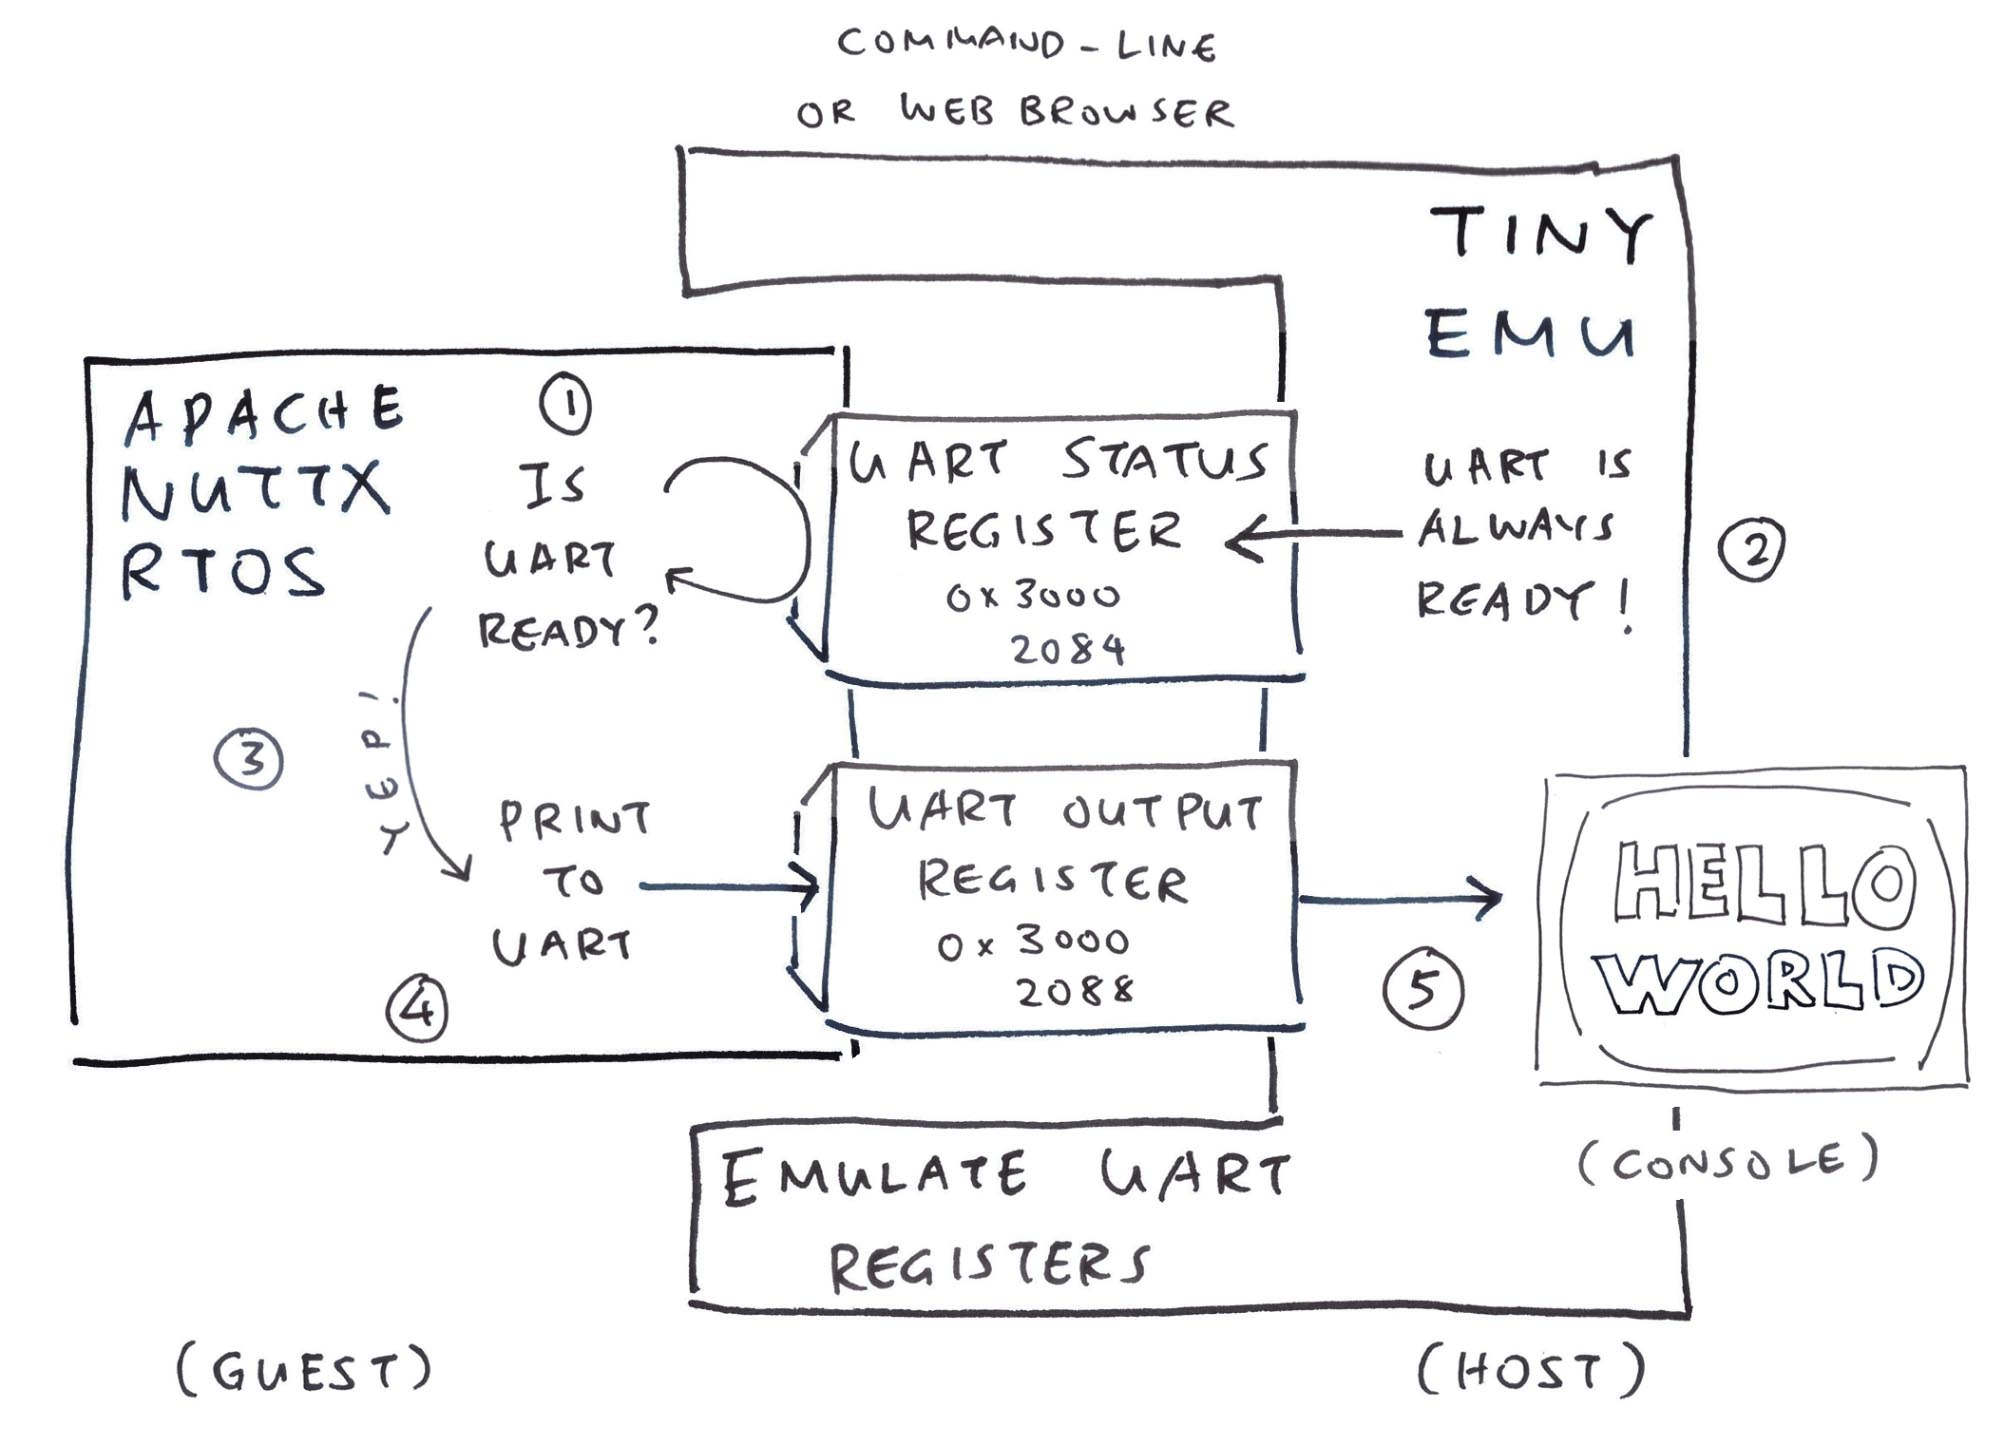 COMMAND-LINE
OR WEB BROWSER
TINY
EMU
APACHE
NUTTX
RTOS
1
IS
UART
READY?
UART STATUS
REGISTER
0x3000
2084
UART IS
ALWAYS
READY!
2
3
YEP!
PRINT
TO
UART
4
UART OUTPUT
REGISTER
0x3000
2088
5
HELLO
WORLD
(CONSOLE)
EMULATE UART
REGISTERS
(GUEST)
(HOST)